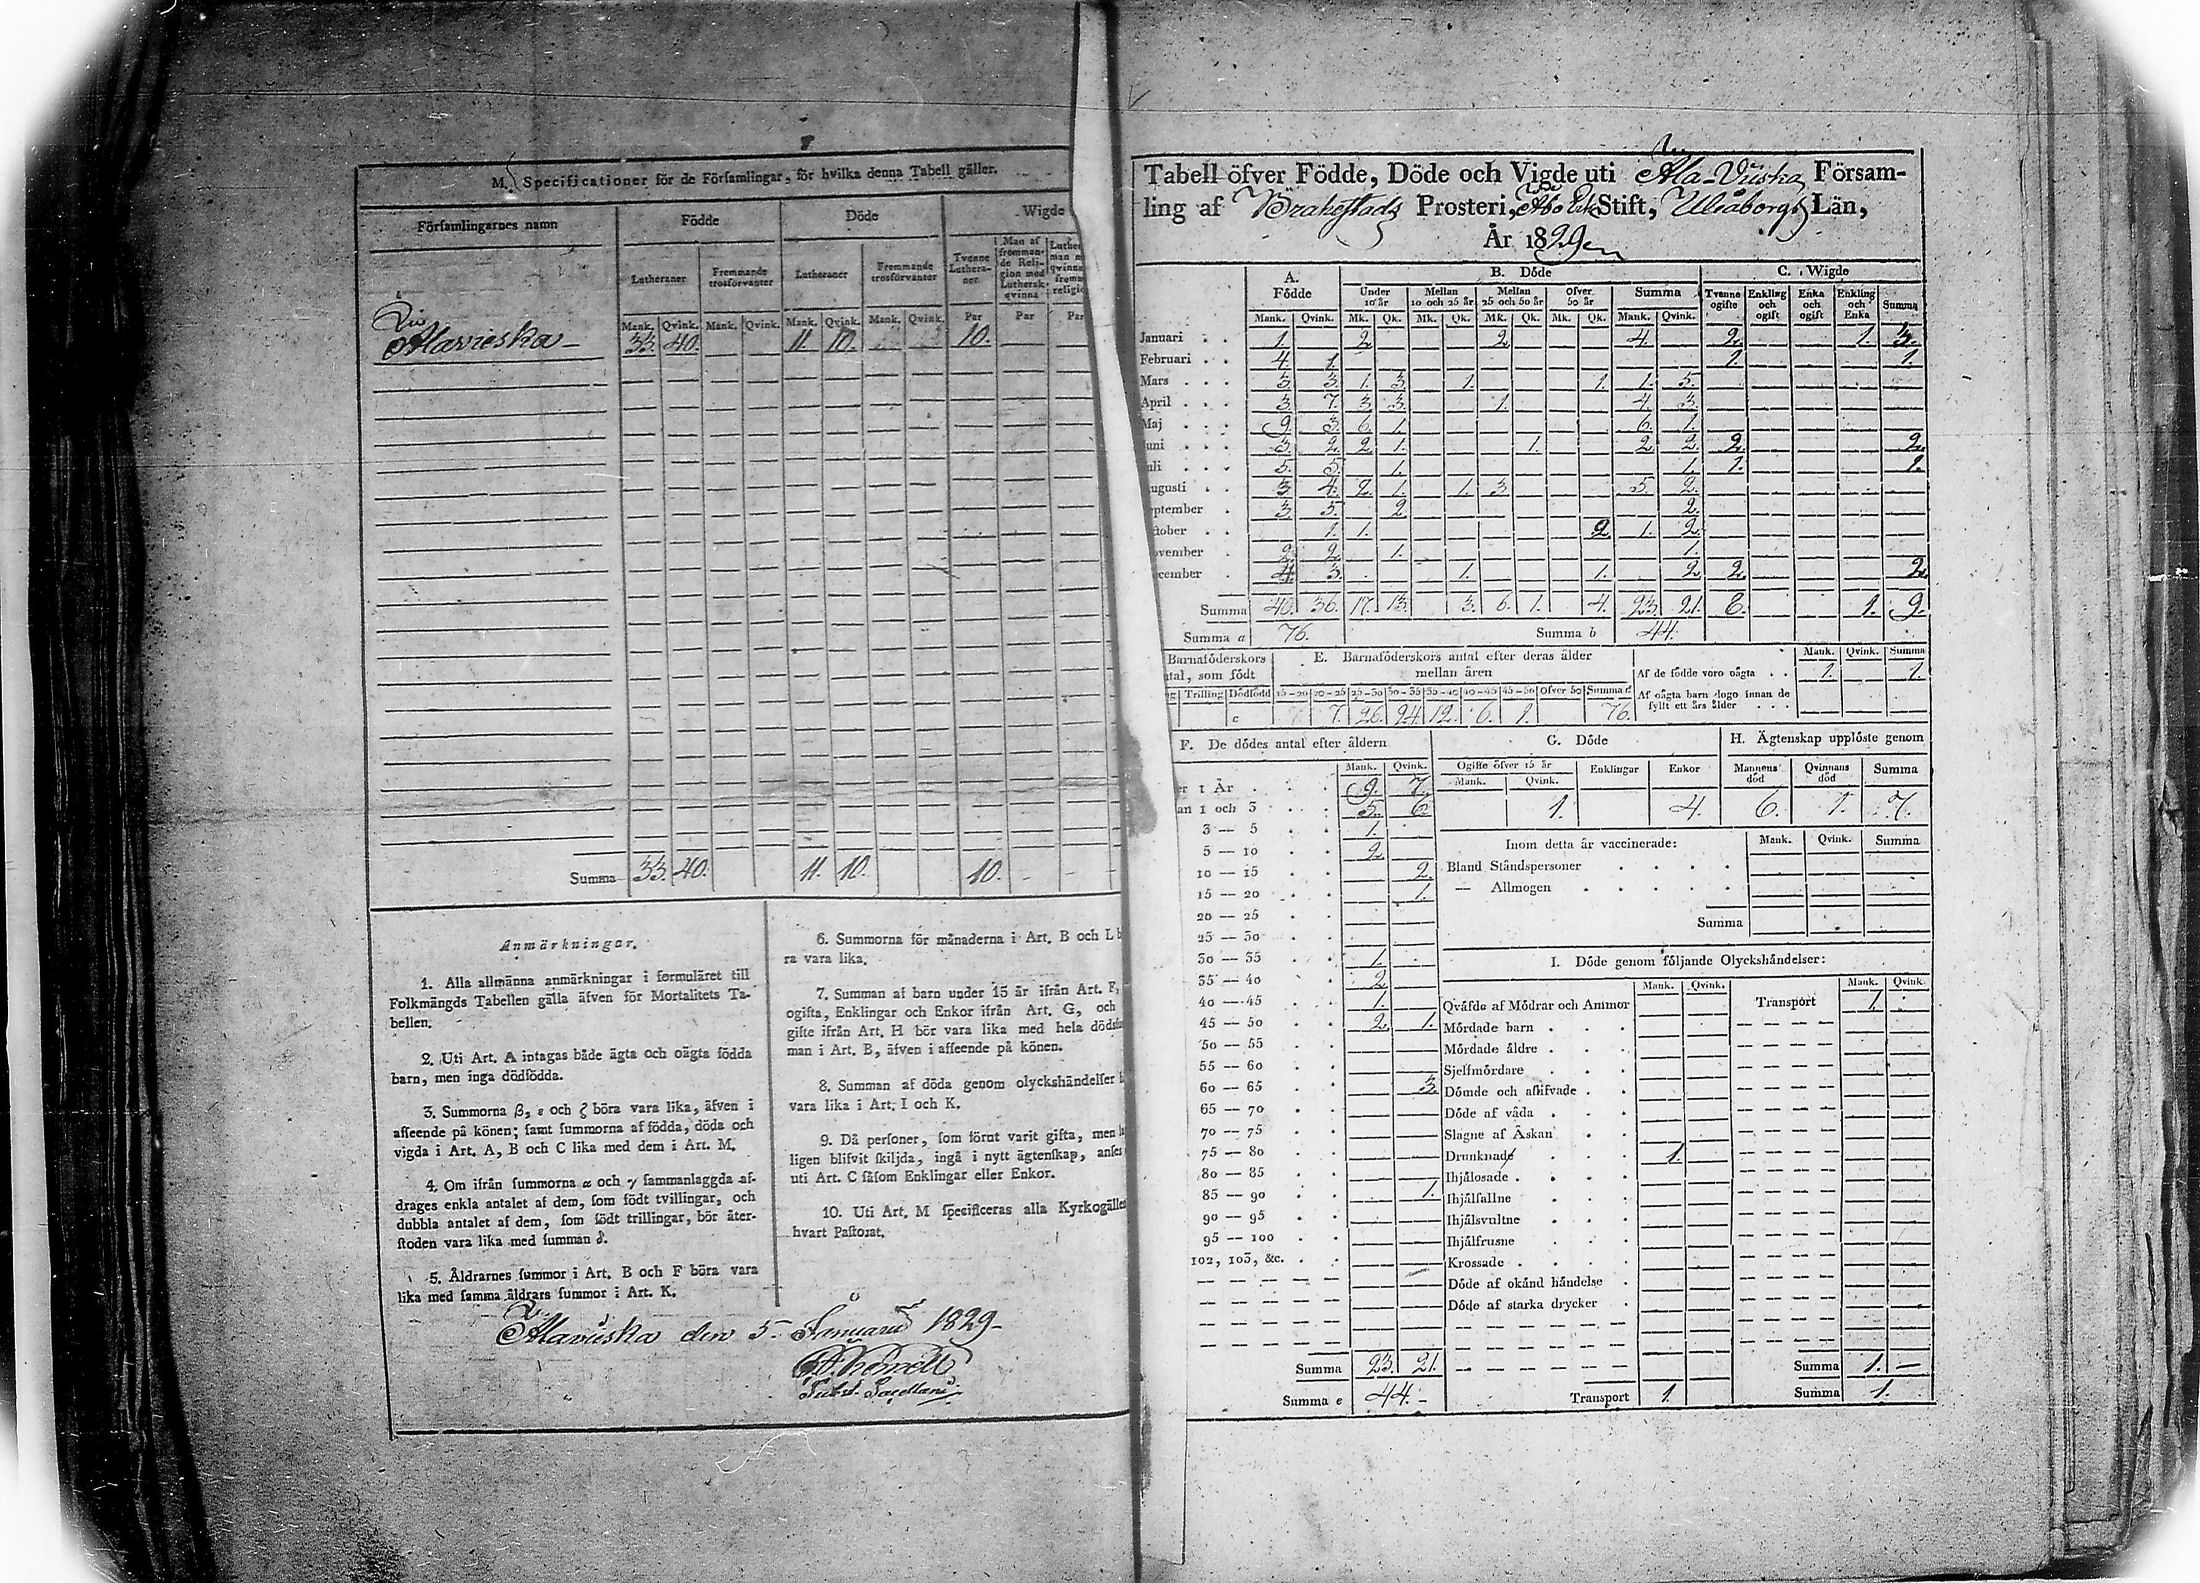 M. Specificationer för de Församlingar, för hvilka denna Tabell gäller.
Församlingarnes namn Födde Döde Wigde
Lutheraner Fremmande trosförvanter Lutheraner Fremmande trosförvanter Tvenne Lutheraner. Man af fremmande Religion med Luthersk qvinna
Mank. Qvink. Mank. Qvink. Mank. Qvink. Mank. Qvink. Par Par Par
Alavieska 33. 40. 11. 10. 10.
Summa 33. 40. 11. 10. 10. - - -
Anmärkningar.
1. Alla allmänna anmärkningar i formuläret till
Folkmängds Tabellen gälla äfven för Mortalitets Ta-
bellen.
2. Uti Art. A intagas både ägta och oägta födda
barn, men inga dödfödda.
3. Summorna β, ε och ζ böra vara lika, äfven i
afseende på könen; samt summorna af födda, döda och
vigda i Art. A, B och C lika med dem i Art. M.
4. Om ifrån summorna α och γ sammanlaggda af-
drages enkla antalet af dem, som födt tvillingar, och
dubbla antalet af dem, som födt trillingar, bör åter-
stoden vara lika med summan δ.
5. Åldrarnes summor i Art. B och F böra vara
lika med samma åldrars summor i Art. K.
6. Summorna för månaderna i Art. B och L b
ra vara lika.
7. Summan af barn under 15 år ifrån Art. F,
ogifta, Enklingar och Enkor ifrån Art. G, och
gifte ifrån Art. H bör vara lika med hela döds
man i Art. B, äfven i afseende på könen.
8. Summan af döda genom olyckshändelser
vara lika i Art. I och K.
9. Då personer, som förut varit gifta, men
ligen blifvit skiljda, ingå i nytt ägtenskap, anses
uti Art. C såsom Enklingar eller Enkor.
10. Uti Art. M specificeras alla Kyrkogälle
hvart Pastorat.
Alavieska den 5. Januarii 1829-
Tabell öfver Födde, Döde och Vigde uti Ala-Viiska Försam-
ling af Brahestads Prosteri, Åbo Erke Stift, Uleåborgs Län,
År 1829
A. Födde B. Döde C. Wigde
Under 10 år Mellan 10 och 25 år Mellan 25 och 50 år Öfver 50 år Summa Tvenne ogifte Enkling och ogift Enka och ogift Enkling och Enka Summa
Mank. Qvink. Mk. Qk. Mk. Qk. Mk. Qk. Mk. Qk. Mank. Qvink.
Januari . . 1. 2. 2. 4. 2. 1. 3.
Februari . . 4. 1. 1. 1.
Mars . . . 3. 3. 1. 3. 1. 1. 1. 5.
April . . . 3. 7. 3. 3. 1. 4. 3.
Maj . . . 9. 3. 6. 1. 6. 1.
uni . . . 3. 2. 2. 1. 1. 2. 2. 2. 2.
uli . . . 5. 5. 1. 1. 1. 1.
ugusti . . 3. 4. 2. 1. 1. 3. 5. 2.
eptember . 3. 5. 2. 2.
ctober . . 1. 1. 2. 1. 2.
ovember . 2. 2. 1. 1.
ecember . 4. 3. 1. 1. 2. 2. 2.
Summa 40. 36. 17. 13. 3. 6. 1. 4. 23. 21. 8. 1. 9.
Summa a 76. Summa b 44.
Barnaföderskors
tal, som födt
Trilling Dödfödd
c
E. Barnaföderskors antal efter deras ålder
mellan åren
15–20 20–25 25–30 30–35 35–40 40–45 45–50 Öfver 50 Summa d
7. 26. 24. 12. 6. 1. 76.
Mank. Qvink. Summa
Af de födde voro oägta . . 1. 1.
Af oägta barn dogo innan de
fyllt ett års ålder . . .
F. De dödes antal efter åldern
Mank. Qvink.
er 1 År . . . 9. 7.
an 1 och 3 . . . 5. 6.
3 — 5 . . 1.
5 — 10 . . 2.
10 — 15 . . 2.
15 — 20 . . 1.
20 — 25 . .
25 — 30 . .
30 — 35 . . 1.
35 — 40 . . 2.
40 — 45 . . 1.
45 — 50 . . 2. 1.
50 — 55 . .
55 — 60 . .
60 — 65 . . 3.
65 — 70 . .
70 — 75 . .
75 — 80 . .
80 — 85 . .
85 — 90 . . 1.
90 — 95 . .
95 — 100 . .
102, 103, &c. . .
Summa 23. 21.
Summa e 44. -
G. Döde
Ogifte öfver 15 år Enklingar Enkor
Mank. Qvink.
1. 4.
H. Ägtenskap upplöste genom
Mannens död Qvinnans död Summa
6. 1. 7.
Inom detta år vaccinerade: Mank. Qvink. Summa
Bland Ståndspersoner . . . .
— Allmogen . . . . .
Summa
I. Döde genom följande Olyckshändelser:
Mank. Qvink. Mank. Qvink
Qväfde af Mödrar och Ammor Transport 1.
Mördade barn . . .
Mördade äldre . . .
Sjelfmördare . . .
Dömde och aflifvade . .
Döde af våda . . .
Slagne af Åskan . .
Drunknade . . . 1.
Ihjälosade . . . .
Ihjälfallne . . .
Ihjälsvultne . . .
Ihjälfrusne . . .
Krossade . . . .
Döde af okänd händelse .
Döde af starka drycker .
Summa 1. —
Transport 1. Summa 1.